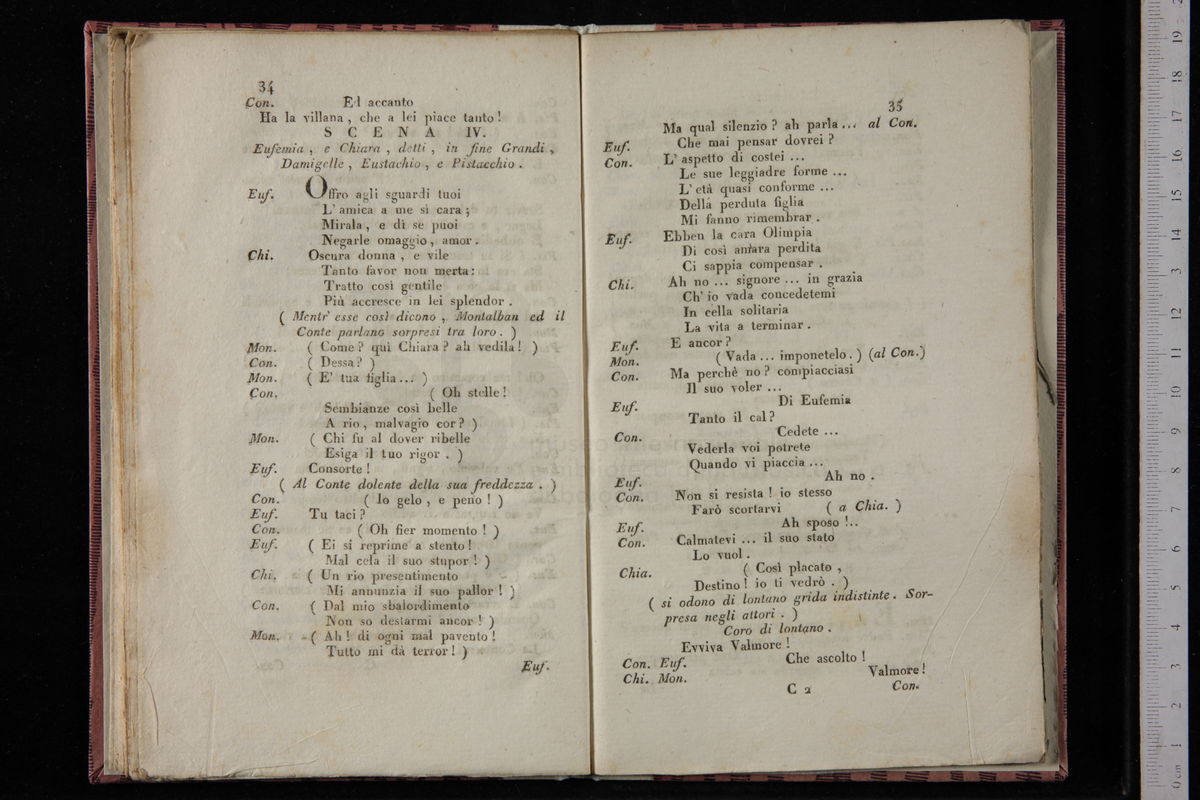 34
Con. Ed accanto
Ha la villana , che a lei piace tanto !
S C E N A IV.
Eufemia , e Chiara , detti , in fine Grandi ,
Damigelle , Eustachio , e Pistacchio .
Euf. Offro agli sguardi tuoi
L' amica a me sì cara ;
Mirala , e di se puoi
Negarle omaggio , amor .
Chi. Oscura donna , e vile
Tanto favor non merta :
Tratto così gentile
Più accresce in lei splendor .
( Mentr' esse così dicono , Montalban ed il
Conte parlano sorpresi tra loro . )
Mon. ( Come ? quì Chiara ? ah vedila ! )
Con. ( Dessa ? )
Mon. ( E' tua figlia ... )
Con. ( Oh stelle !
Sembianze così belle
A rio , malvagio cor ? )
Mon. ( Chi fu al dover ribelle
Esiga il tuo rigor . )
Euf. Consorte !
( Al Conte dolente della sua freddezza . )
Con. ( Io gelo , e peno ! )
Euf. Tu taci ?
Con. ( Oh fier momento ! )
Euf. ( Ei si reprime a stento !
Mal cela il suo stupor ! )
Chi. ( Un rio presentimento
Mi annunzia il suo pallor ! )
Con. ( Dal mio sbalordimento
Non so destarmi ancor ! )
Mon. ( Ah ! di ogni mal pavento !
Tutto mi dà terror ! )
Euf.
35
Ma qual silenzio ? ah parla ... al Con.
Euf. Che mai pensar dovrei ?
Con. L' aspetto di costei ...
Le sue leggiadre forme ...
L' età quasi conforme ...
Della perduta figlia
Mi fanno rimembrar .
Euf. Ebben la cara Olimpia
Di così amara perdita
Ci sappia compensar .
Chi. Ah no ... signore ... in grazia
Ch' io vada concedetemi
In cella solitaria
La vita a terminar .
Euf. E ancor ?
Mon. ( Vada ... imponetelo . ) (al Con.)
Con. Ma perchè no ? compiacciasi
Il suo voler ...
Euf. Di Eufemia
Tanto il cal ?
Con. Cedete ...
Vederla voi potrete
Quando vi piaccia ...
Euf. Ah no .
Con. Non si resista ! io stesso
Farò scortarvi ( a Chia. )
Euf. Ah sposo !..
Con. Calmatevi ... il suo stato
Lo vuol .
Chia. ( Così placato ,
Destino ! io ti vedrò . )
( si odono di lontano grida indistinte . Sor-
presa negli attori . )
Coro di lontano .
Evviva Valmore !
Con. Euf. Che ascolto !
Chi. Mon. Valmore !
C 2 Con.